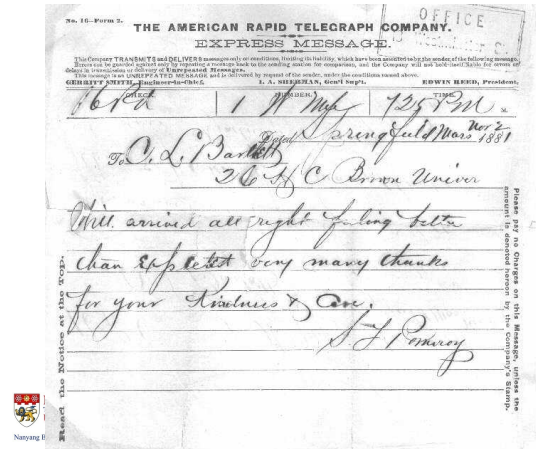 No. 16—Form 2.
OFFICE
THE AMERICAN RAPID TELEGRAPH COMPANY.
EXPRESS MESSAGE.
This Company TRANSMITS and DELIVERS messages only on conditions, limiting its liability, which have been assented to by the sender of the following message.
Errors can be guarded against only by repeating a message back to the sending station for comparison, and the Company will not hold itself liable for errors or
delays in transmission or delivery of Unrepeated Messages.
This message is an UNREPEATED MESSAGE and is delivered by request of the sender, under the conditions named above.
GERRITT SMITH, Engineer-in-Chief, I. A. SHERMAN, Gen'l Sup't. EDWIN REED, President.
CHECK. NUMBER. TIME.
725 PM M.
Dated Springfield Mass Nov 2 1881
To C. L. Bartlett
26 H C Brown Univer
Will arrived all right feeling better
than expected very many thanks
for your Kindness & Care.
S F Pomeroy
Read the Notice at the Top.
Please pay no Charges on this Message, unless the
amount is denoted hereon by the Company's Stamp.
Nanyang